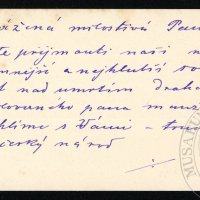 ážená milostivá Pan
te přijmouti naši n
mnější a nejhlubší so
t nad úmrtím draho
lovaného pana manž
chlíme s Vámi – tou
český národ
MUSAEUM